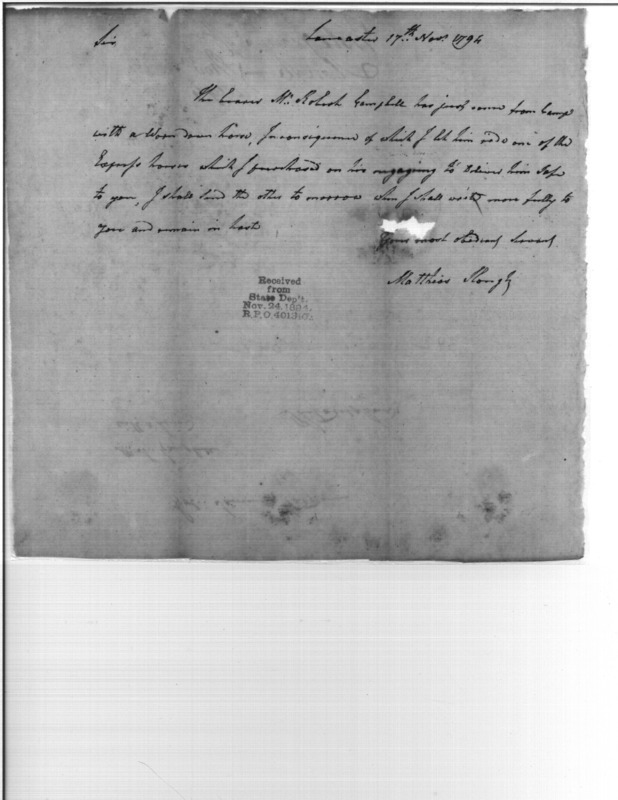 Lancaster 17th Novr. 1794
Sir
The bearer Mr. Robert Campbell has just come from Camp
with a Worn down horse, In consequence of which I let him ride one of the
Express horses which I purchased on his engaging to deliver him Safe
to you, I shall send the other to morrow when I shall write more fully to
you and remain in hast
Your most obedient Servant
Matthias Slough
Received
from
State Dep't.
Nov. 24, 1894.
R.P.O.